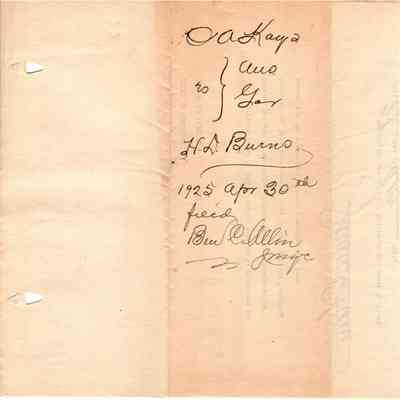 O A Kays
vs } Ans
Gar
H. D. Burns
1925 Apr 30th
filed
Ben C. Allin
Judge